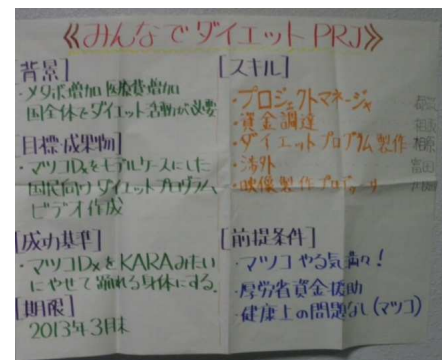 ≪みんなでダイエットPRJ≫
背景]
・メタボ増加 医療費増加
国全体でダイエット活動が必要
目標・成果物]
・マツコDxをモデルケースにした
国民向けダイエットプログラム
ビデオ作成
[成功基準]
・マツコDxをKARAみたい
にやせて踊れる身体にする。
[期限]
2013年3月末
[スキル]
・プロジェクトマネージャ
・資金調達
・ダイエットプログラム製作
相原
・渉外
富田
・映像製作プロデューサ
[前提条件]
・マツコ やる気満々!
・厚労省資金援助
・健康上の問題なし(マツコ)